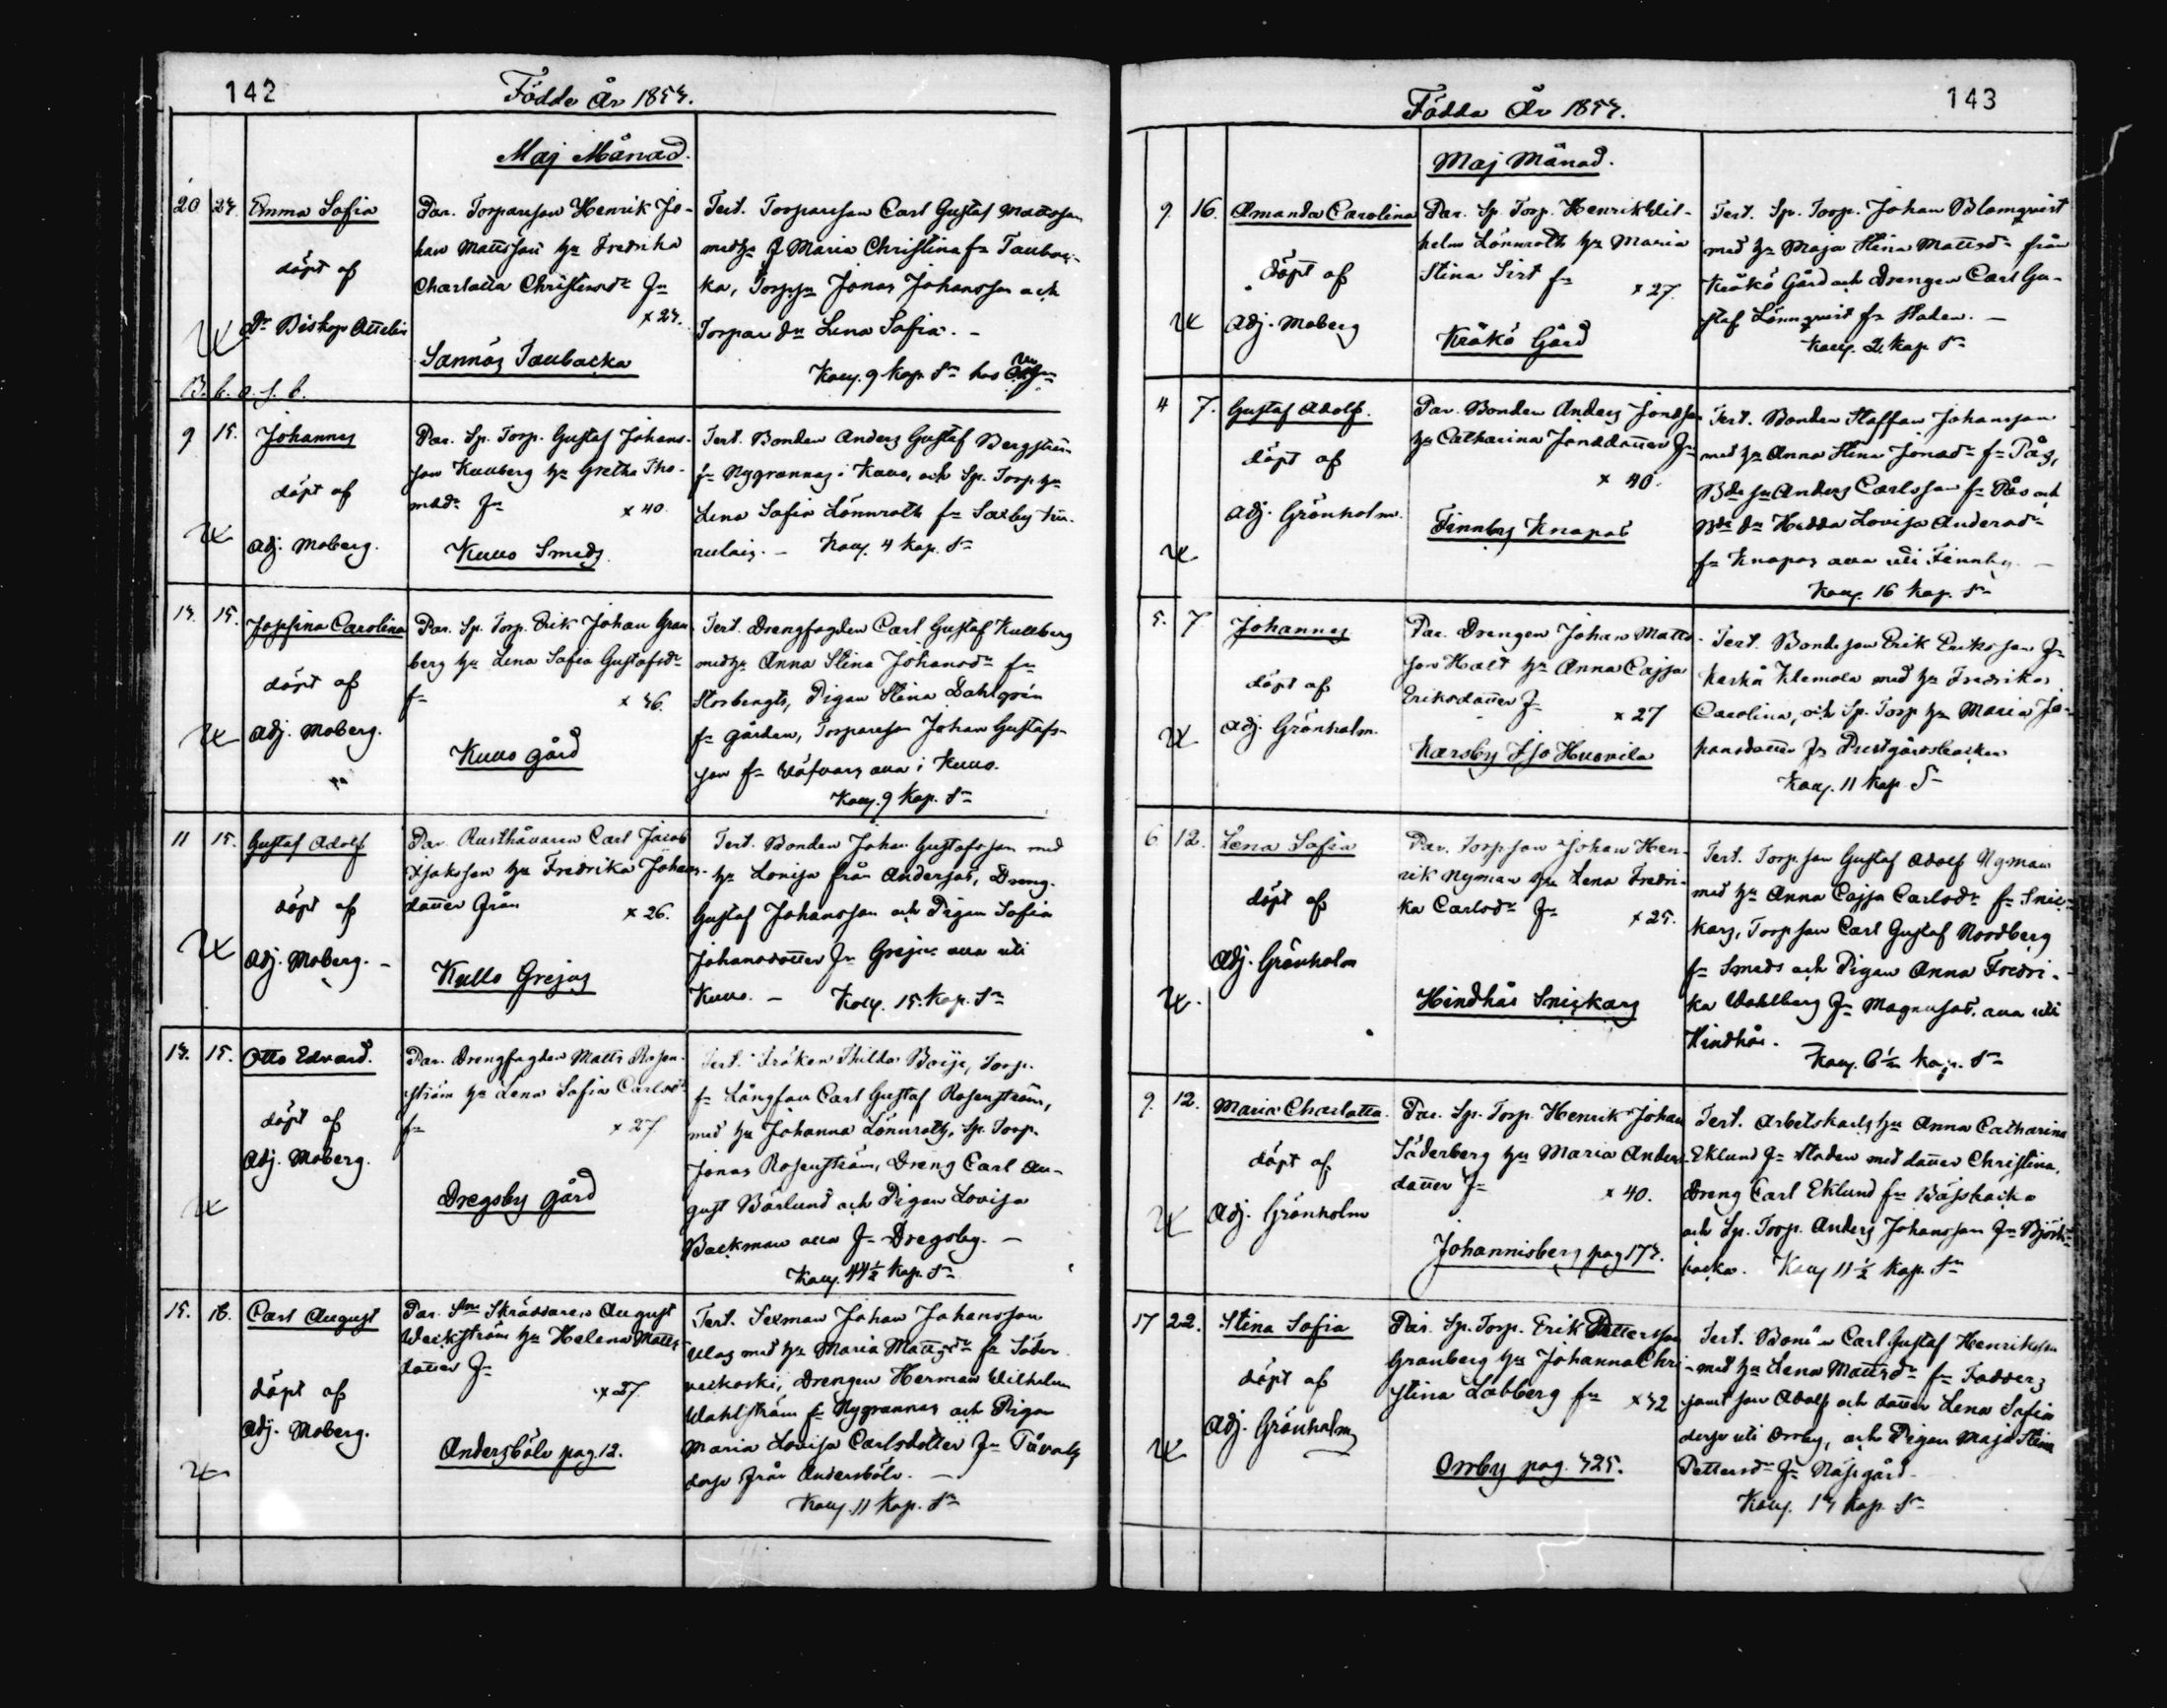 142
Födde År 1854.
Maj Månad.
20 24. Emma Sofia
döpt af
Dr Biskop Ottelin
B. b. o. s. b.
Par. Torpareson Henrik Jo-
han Mattsson hu Fredrika
Charlotta Christersdr fn
x 24.
Sannäs Taubacka
Test. Torpareson Carl Gustaf Mattsson
med hu Maria Christina fn Taubac-
ka, Jonas Johansson och
Torpar dn Lena Sofia. -
9 kop. Sr
9 15. Johannes
döpt af
Adj. Moberg.
Par. Sp. Torp. Gustaf Johans-
son Kullberg hu Greta Tho-
masdr fn x 40.
Kullo Smeds
Test. Bonden Anders Gustaf Bergström
fn Nygrannas i Kullo, och Sp. Torp hu
Lena Sofia Lönnroth fn Saxby
4 kop. Sr
14. 15. Josefina Carolina
döpt af
Adj. Moberg.
Par. Sp. Torp. Erik Johan Gran-
berg hu Lena Sofia Gustafsdr
fn x 46.
Kullo gård
Test. Drengfogden Carl Gustaf Kullberg
med hu Anna Stina Johansdr fn
Storbengts, Pigan Stina Dahlgrén
fn gården, Torpareson Johan Gustafs-
son fn Wäfvars alla i Kullo.
9 kop. Sr
11 15. Gustaf Adolf
döpt af
Adj. Moberg. -
Par. Rusthållaren Carl Jacob
Isaksson hu Fredrika Johans-
datter från x 26.
Kullo Grejas
Test. Bonden Johan Gustafsson med
hu Lovisa från Andersas, Dreng.
Gustaf Johansson och Pigan Sofia
Johansdotter fn Grejas alla uti
Kullo. - 15. kop. Sr
14. 15. Otto Edvard.
döpt af
Adj. Moberg.
Par. Drengfogden Matts Rosen-
ström hu Lena Sofia Carlsdr
fn x 27
Dregsby gård
Test. Fröken Thilda Boije, Torp.
fn Långfall Carl Gustaf Rosenström,
med hu Johanna Lönnroth, Sp. Torp.
Jonas Rosenström, Dreng Carl Au-
gust Bärlund och Pigan Lovisa
Backman alla fn Dregsby. -
44½ kop. Sr
15. 16. Carl August
döpt af
Adj. Moberg.
Par. Skräddaren August
Weckström hu Helena Matts-
datter fn
x 27
Andersböle pag. 12.
Test. Sexman Johan Johansson
Ulas med hu Maria Mattsdr fn Söder
veckoski, Drengen Herman Wilhelm
Wahlström fn Nygrannas och Pigan
Maria Lovisa Carlsdotter fn Tåvalts
dessa från Andersböle. -
11 kop. Sr
143
Födda År 1854.
Maj Månad.
9. 16. Amanda Carolina
döpt af
Adj. Moberg
Par. Sp. Torp. Henrik Wil-
helm Lönnroth hu Maria
Stina Sirt fn
x 27.
Kråkö Gård
Test. Sp. Torp. Johan Blomqvist
med hu Maja Stina Mattsdr från
Kråkö Gård och Drengen Carl Gu-
staf Lönnqvist fn Staden. -
2. kop. Sr
4 7. Gustaf Adolf.
döpt af
Adj. Grönholm.
Par. Bonden Anders Jonasson
hu Catharina Jonasdatter fn
x 40.
Finnby Knapas
Test. Bonden Staffan Johansson
med hu Anna Stina Jonasdr fn Pås,
Anders Carlsson fn Pås och
Bde dn Hedda Lovisa Andersdr
fn Knapas alla uti Finnby. -
16 kop. Sr
5. 7 Johannes
döpt af
Adj. Grönholm.
Par. Drengen Johan Matts-
son Halt hu Anna Cajsa
Eriksdatter fn
x 27
Karsby Huvnila
Test. Bondeson Erik Eriksson fn
Karsby Klemola med hu Fredrika
Carolina, och Sp. Torp hu Maria Jo-
hansdatter fn Prestgårdsbacken
11 kop. Sr
6. 12. Lena Sofia
döpt af
Adj. Grönholm
Par. Torpson Johan Hen-
rik Nyman hu Lena Fredri-
ka Carlsdr fn x 25.
Hindhår Snickars
Test. Torpson Gustaf Adolf Nyman
med hu Anna Cajsa Carlsdr fn Snic-
kars, Torpson Carl Gustaf Nordberg
fn Smeds och Pigan Anna Fredri-
ka Wahlberg fn Magnusas, alla uti
Hindhår.
6½ kop. Sr
9. 12. Maria Charlotta.
döpt af
Adj. Grönholm
Par. Sp. Torp. Henrik Johan
Söderberg hu Maria Anders-
datter fn x 40.
Johannisberg pag 174.
Test. Arbetskarls hu Anna Catharina
Eklund fn Staden med datter Christina,
Dreng Carl Eklund fn
och Sp. Torp. Anders Johansson fn Björk-
backa. 11½ kop. Sr
17 22. Stina Sofia
döpt af
Adj. Grönholm
Par. Sp. Torp. Erik Pettersson
Granberg hu Johanna Chri-
stina Lobberg fn x 42
Orrby pag. 425.
Test. Bonden Carl Gustaf Henriksson
med hu Lena Mattsdr fn Fadders
samt son Adolf och datter Lena Sofia
dessa uti Orrby, och Pigan Maja Stina
Pettersdr fn Näsegård
14 kop. Sr